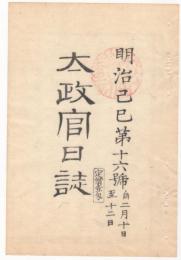 明治己巳第十六號
自二月十日
至十二日
太政官日誌